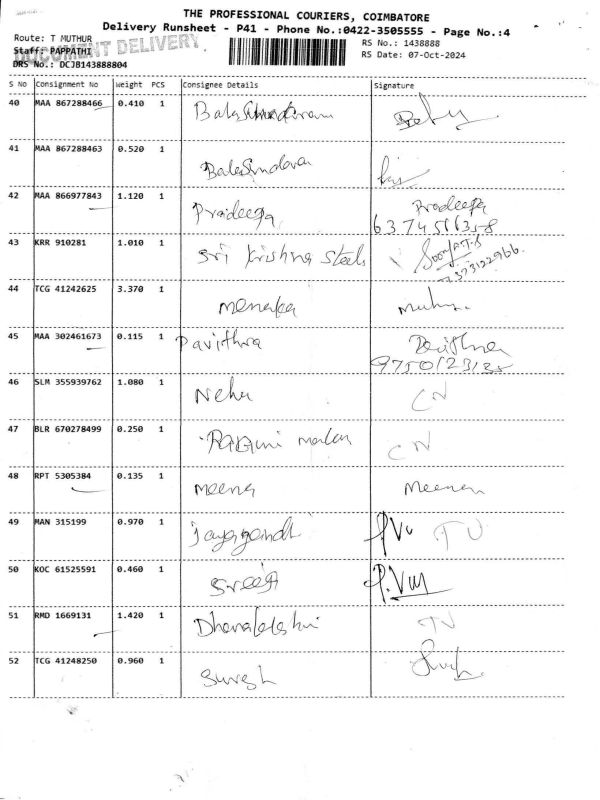 THE PROFESSIONAL COURIERS, COIMBATORE
Delivery Runsheet - P41 - Phone No.:0422-3505555 - Page No.:4
Route: T MUTHUR
RS No.: 1438888
Staff: PAPPATHI
DOCUMENT DELIVERY
RS Date: 07-Oct-2024
DRS No.: DCJB143888804
S No Consignment No Weight PCS Consignee Details Signature
40 MAA 867288466 0.410 1
41 MAA 867288463 0.520 1
42 MAA 866977843 1.120 1 Pradeepa Pradeepa
43 KRR 910281 1.010 1 Sri Krishna Steels
44 TCG 41242625 3.370 1 Menaka
45 MAA 302461673 0.115 1 Pavithra
46 SLM 355939762 1.080 1 Neha CN
47 BLR 670278499 0.250 1 CN
48 RPT 5305384 0.135 1 Meena Meena
49 MAN 315199 0.970 1 Jayagandhi
50 KOC 61525591 0.460 1 P.Vm
51 RMD 1669131 1.420 1 TV
52 TCG 41248250 0.960 1 Suresh